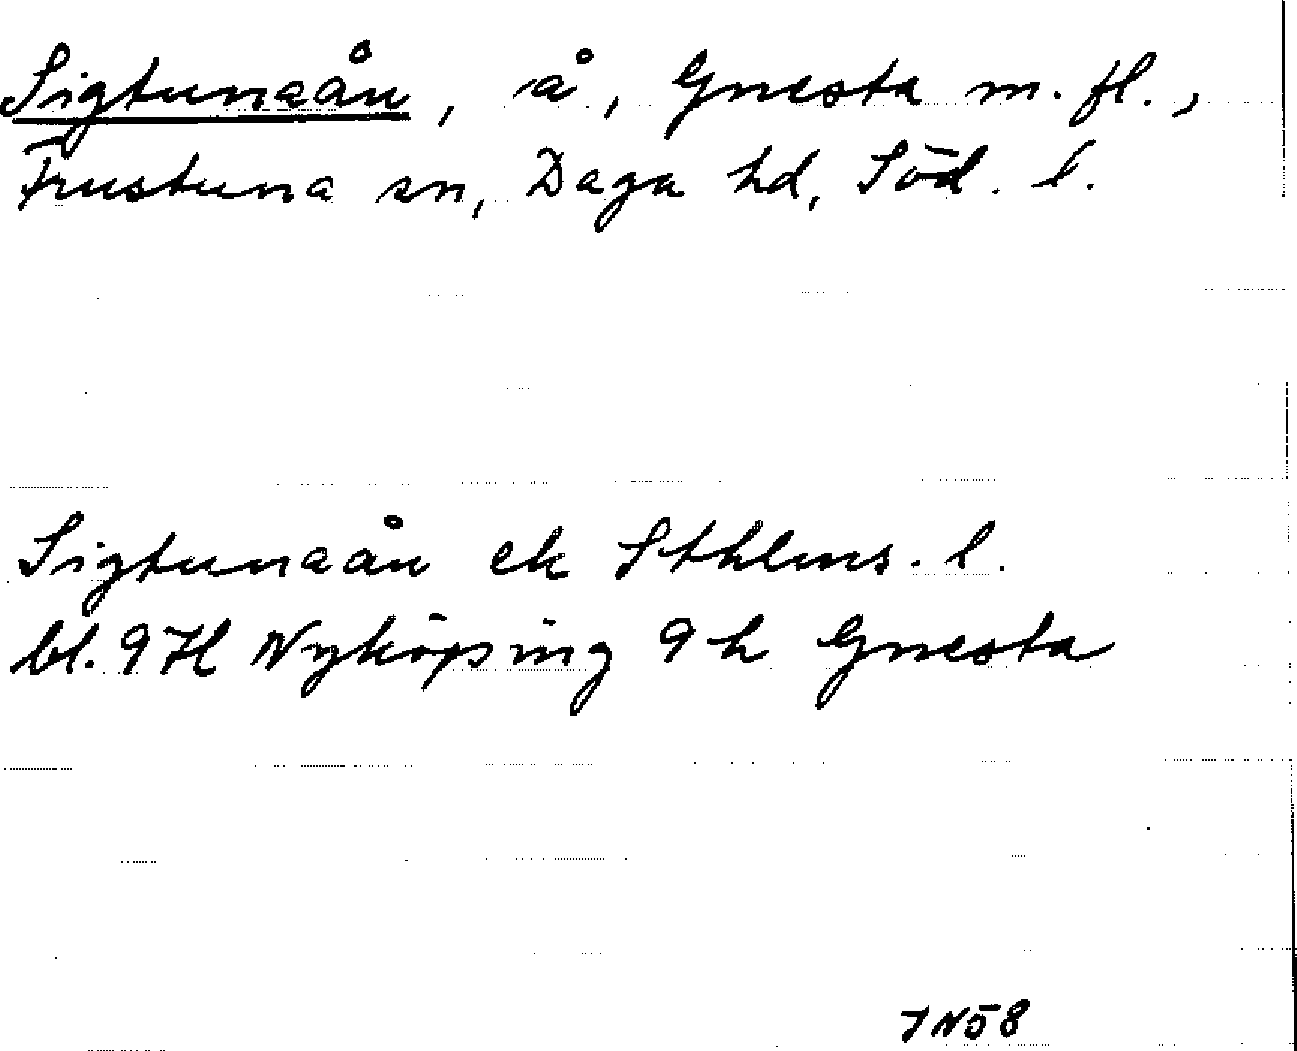 Sigtunaån, å, Gnesta m. fl.,
Frustuna sn, Daga hd, Söd. l.
Sigtunaån ek Sthlms. l.
bl. 9 H Nyköping 9 h Gnesta